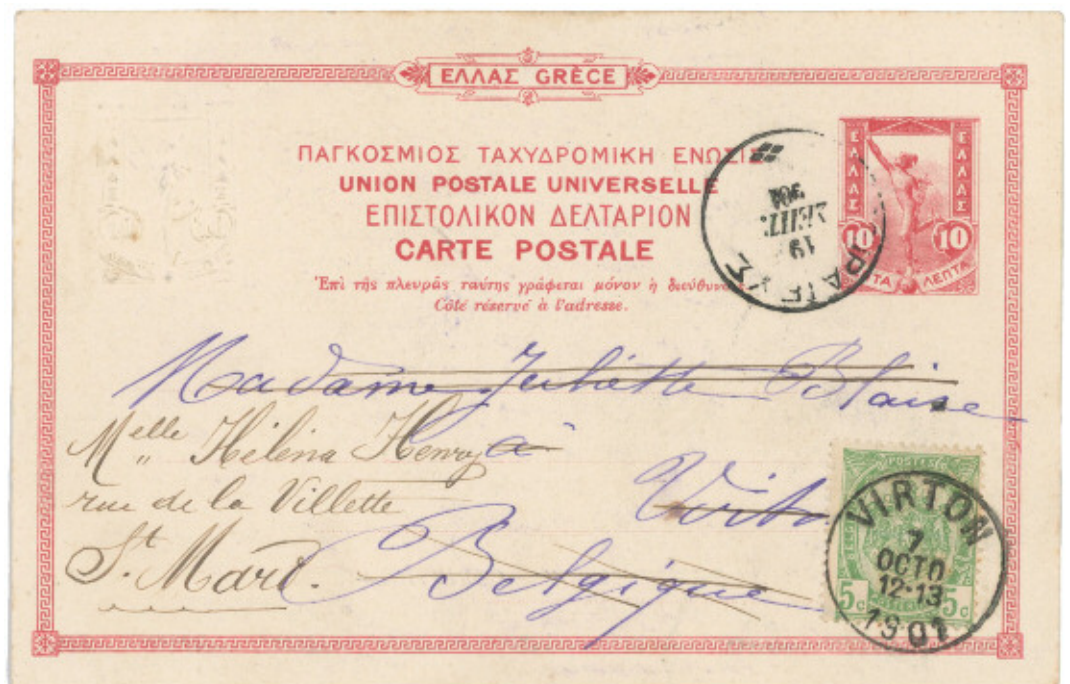 ΕΛΛΑΣ GRÈCE
ΠΑΓΚΟΣΜΙΟΣ ΤΑΧΥΔΡΟΜΙΚΗ ΕΝΩΣΙ
UNION POSTALE UNIVERSELLE
ΕΠΙΣΤΟΛΙΚΟΝ ΔΕΛΤΑΡΙΟΝ
CARTE POSTALE
Ἐπὶ τῆς πλευρᾶς ταύτης γράφεται μόνον ἡ διεύθυν
Côté réservé à l'adresse.
ΕΛΛΑΣ ΕΛΛΑΣ
10 10
ΛΕΠΤΑ
19
ΠΕΙΡΑΙΕΥΣ
Madame Juliette Blaise
à
Virto
Belgique
Melle Hélèna Henry
rue de la Villette
St. Mard.
POSTES
5c 5c
VIRTON
7
OCTO
12-13
1901